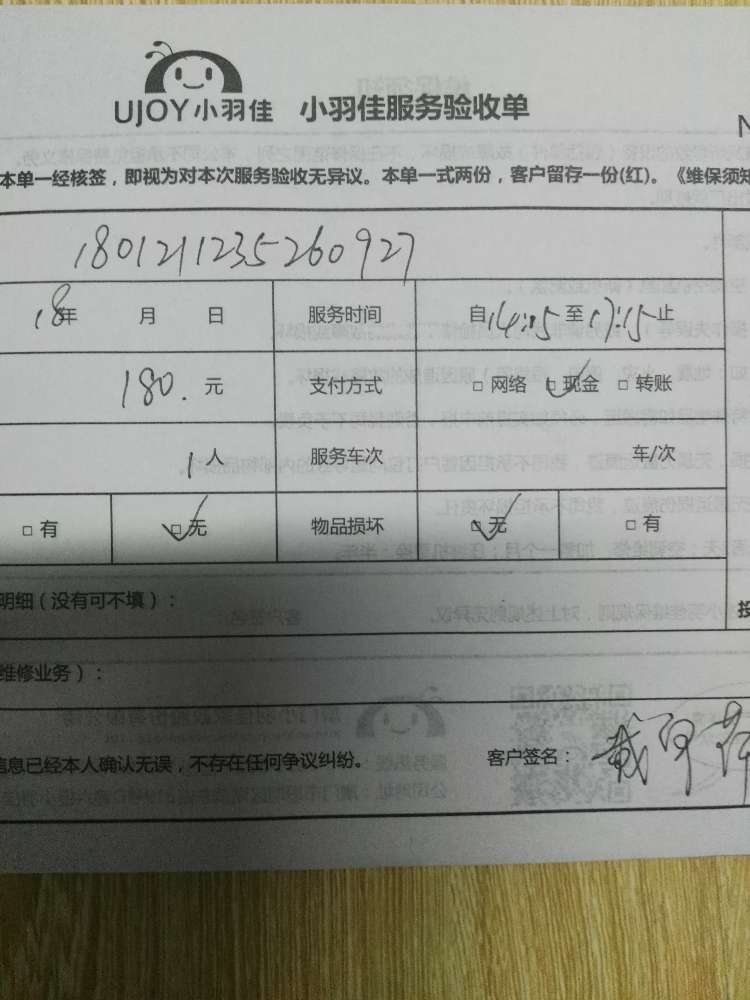 UJOY小羽佳 小羽佳服务验收单
N
本单一经核签，即视为对本次服务验收无异议。本单一式两份，客户留存一份(红)。《维保须知
180121123526​0927
18年 月 日 服务时间 自14:15至17:15止
180.元 支付方式 □ 网络 □ 现金 □ 转账
1人 服务车次 车/次
□ 有 □ 无 物品损坏 □ 无 □ 有
明细（没有可不填）：
投
维修业务）：
信息已经本人确认无误，不存在任何争议纠纷。 客户签名：戴阿